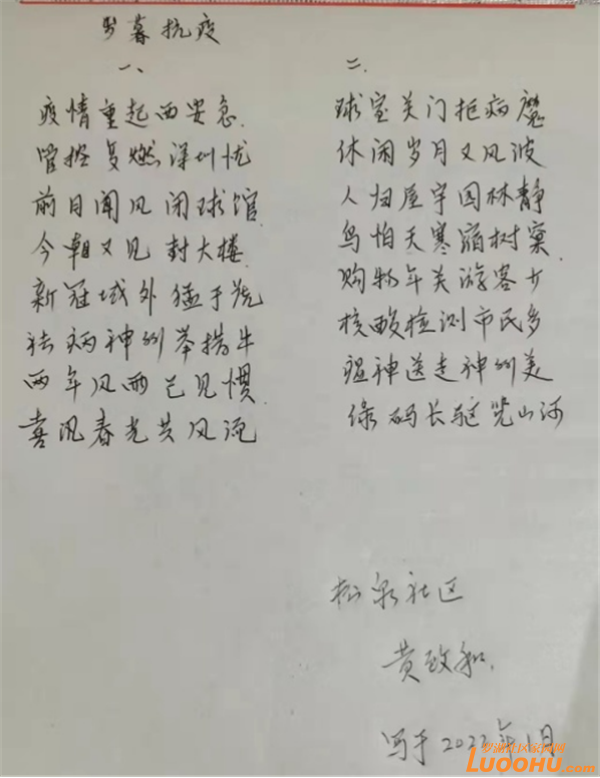 岁暮抗疫
一、
疫情重起西安急.
管控复燃深圳忧
前日闻风闭球馆.
今朝又见封大楼.
新冠域外猛于虎
祛病神州举措牛
两年风雨已见惯.
喜春光共风流
二.
球室关门拒病魔
休闲岁月又风波
人归屋宇园林静
鸟怕天寒宿树窠.
购物年关游客少
核酸检测市民多
瘟神送走神州美
绿码长驱览山河
松泉社区
黄致和.
写于2022年1月
罗湖社区家园网
LUOOHU.com